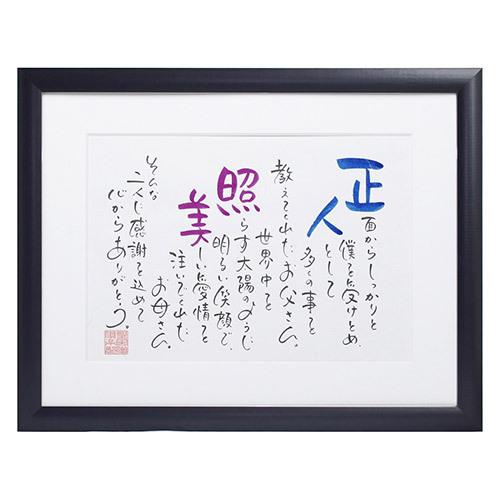 正面からしっかりと
僕を受けとめ、
人として
多くの事を
教えてくれたお父さん。
世界中を
照らす太陽のように
明るい笑顔で、
美しい愛情を
注いでくれた
お母さん。
そんな
二人に感謝を込めて
心からありがとう。